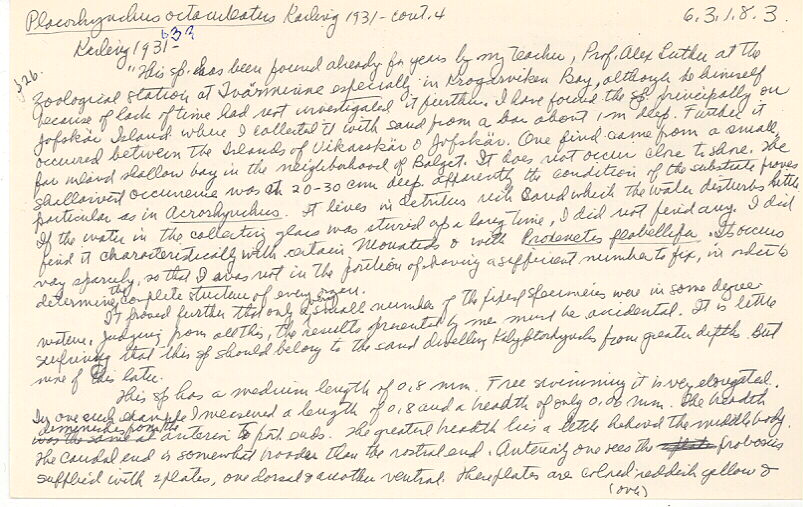 Placorhynchus octaculeatus Karling 1931 - cont. 4 6.3.1.8.3.
Karling 1931 - 633
526. "This sp. has been found already for years by my teacher, Prof. Alex Luther at the
Zoological station at Tvärminne especially in Krogarviken Bay, although he himself
because of lack of time had not investigated it further. I have found the sp principally on
Jofskär Island where I collected it with sand from a bar about 1 m deep. Further it
occurred between the Islands of Vikarskär & Jofskär. One find came from a small,
far inland shallow bay in the neighborhood of Balget. It does not occur close to shore. The
shallowest occurrence was at 20-30 cm deep. Apparently the condition of the substrate proves
particular as in Acrorhynchus. It lives in detritus rich sand which the water disturbs little
If the water in the collecting glass was stirred up a long time, I did not find any. I did
find it characteristically with certain Monotids & with Proxenetes flabellifer. It occurs
very sparsely, so that I was not in the position of having a sufficient number to fix, in order to
determine the complete structure of every organ.
It proved further that only a very small number of the fixed specimens were in some degree
mature. Judging from all this, the results presented by me must be accidental. It is little
surprising that this sp should belong to the sand dwelling Kalyptorhynchs from greater depths. But
more of this later.
This sp has a medium length of 0.8 mm. Free swimming it is very elongated.
In one such example I measured a length of 0.8 and a breadth of only 0.06 mm. The breadth
diminishes from the
anterior to post ends. The greatest breadth lies a little behind the middle body.
The caudal end is somewhat broader than the rostral end. Anteriorly one sees the proboscis
supplied with 2 plates, one dorsal & another ventral. These plates are colored reddish yellow &
(over)